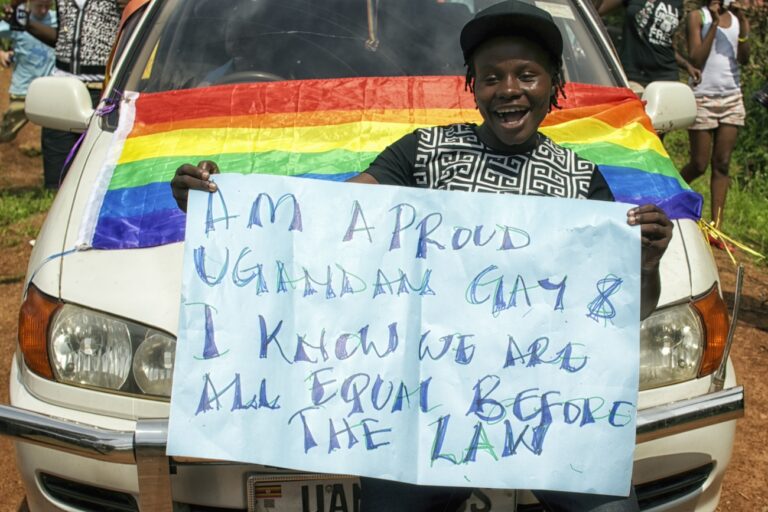 AM A PROUD
UGANDAN GAY &
I KNOW WE ARE
ALL EQUAL BEFORE
THE LAW
UA